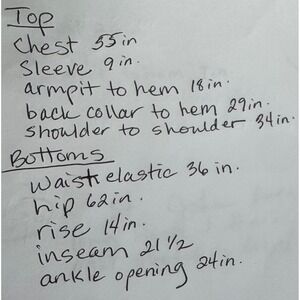 Top
Chest 55 in
Sleeve 9 in.
armpit to hem 18 in.
back collar to hem 29 in.
shoulder to shoulder 34 in.
Bottoms
waist elastic 36 in.
hip 62 in.
rise 14 in.
inseam 21 1/2
ankle opening 24 in.